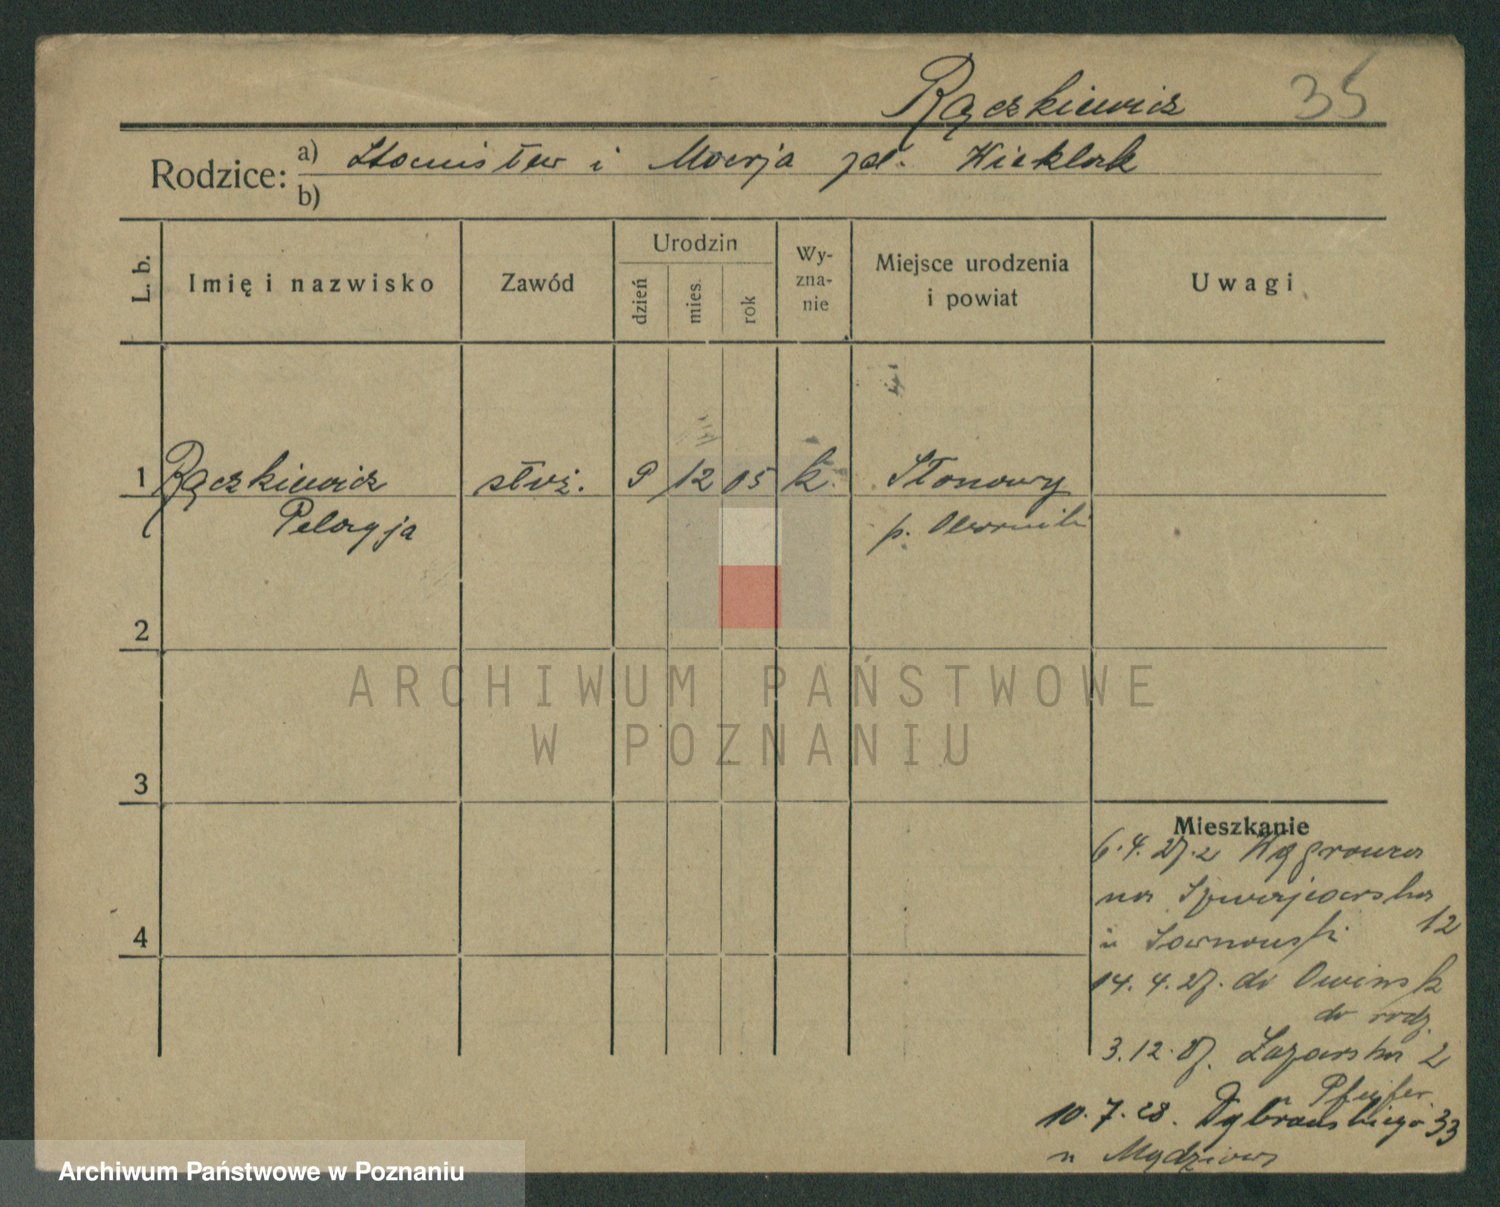 Rączkiewicz 35
Rodzice: a) Stanisław i Marja zd.
b)
L. b. Imię i nazwisko Zawód Urodzin dzień mies. rok Wy-zna-nie Miejsce urodzenia i powiat Uwagi
1 Rączkiewicz służ. 9 12 05 k. Słonawy
Pelagja p. Oborniki
2
ARCHIWUM PAŃSTWOWE
W POZNANIU
3
Mieszkanie
6.4.27. z Wągrowca
na Szwajcarska
12
u Sarnowski
4
14.4.27. do Owińsk
do rodz.
3.12.27. Łazarska 2
u Pfeifer
10.7.28. Dąbrowskiego 33
u
Archiwum Państwowe w Poznaniu